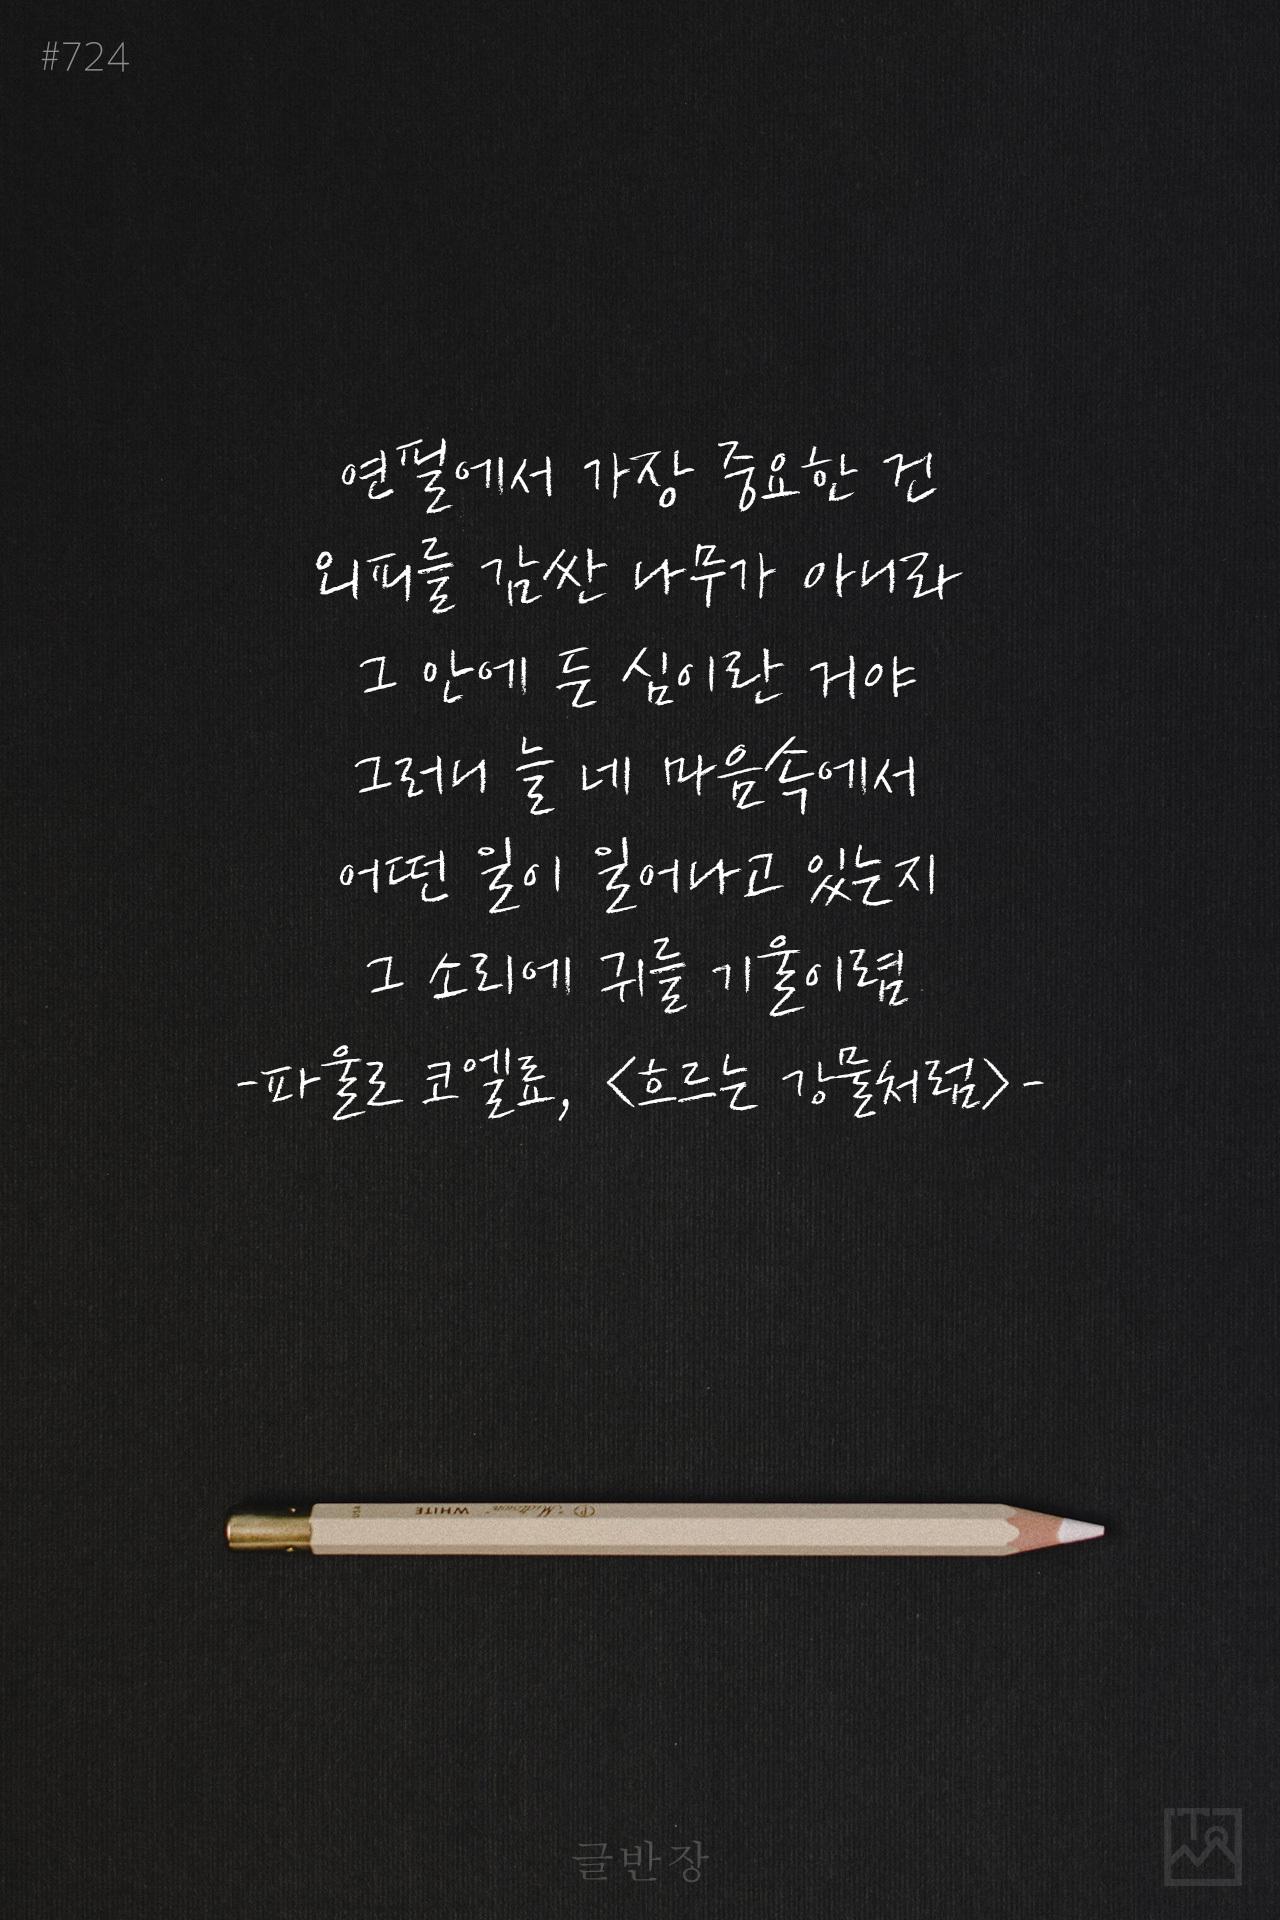 #724
연필에서 가장 중요한 건
외피를 감싼 나무가 아니라
그 안에 든 심이란 거야
그러니 늘 네 마음속에서
어떤 일이 일어나고 있는지
그 소리에 귀를 기울이렴
-파울로 코엘료, <흐르는 강물처럼>-
USA WHITE "Midtown" P
글반장